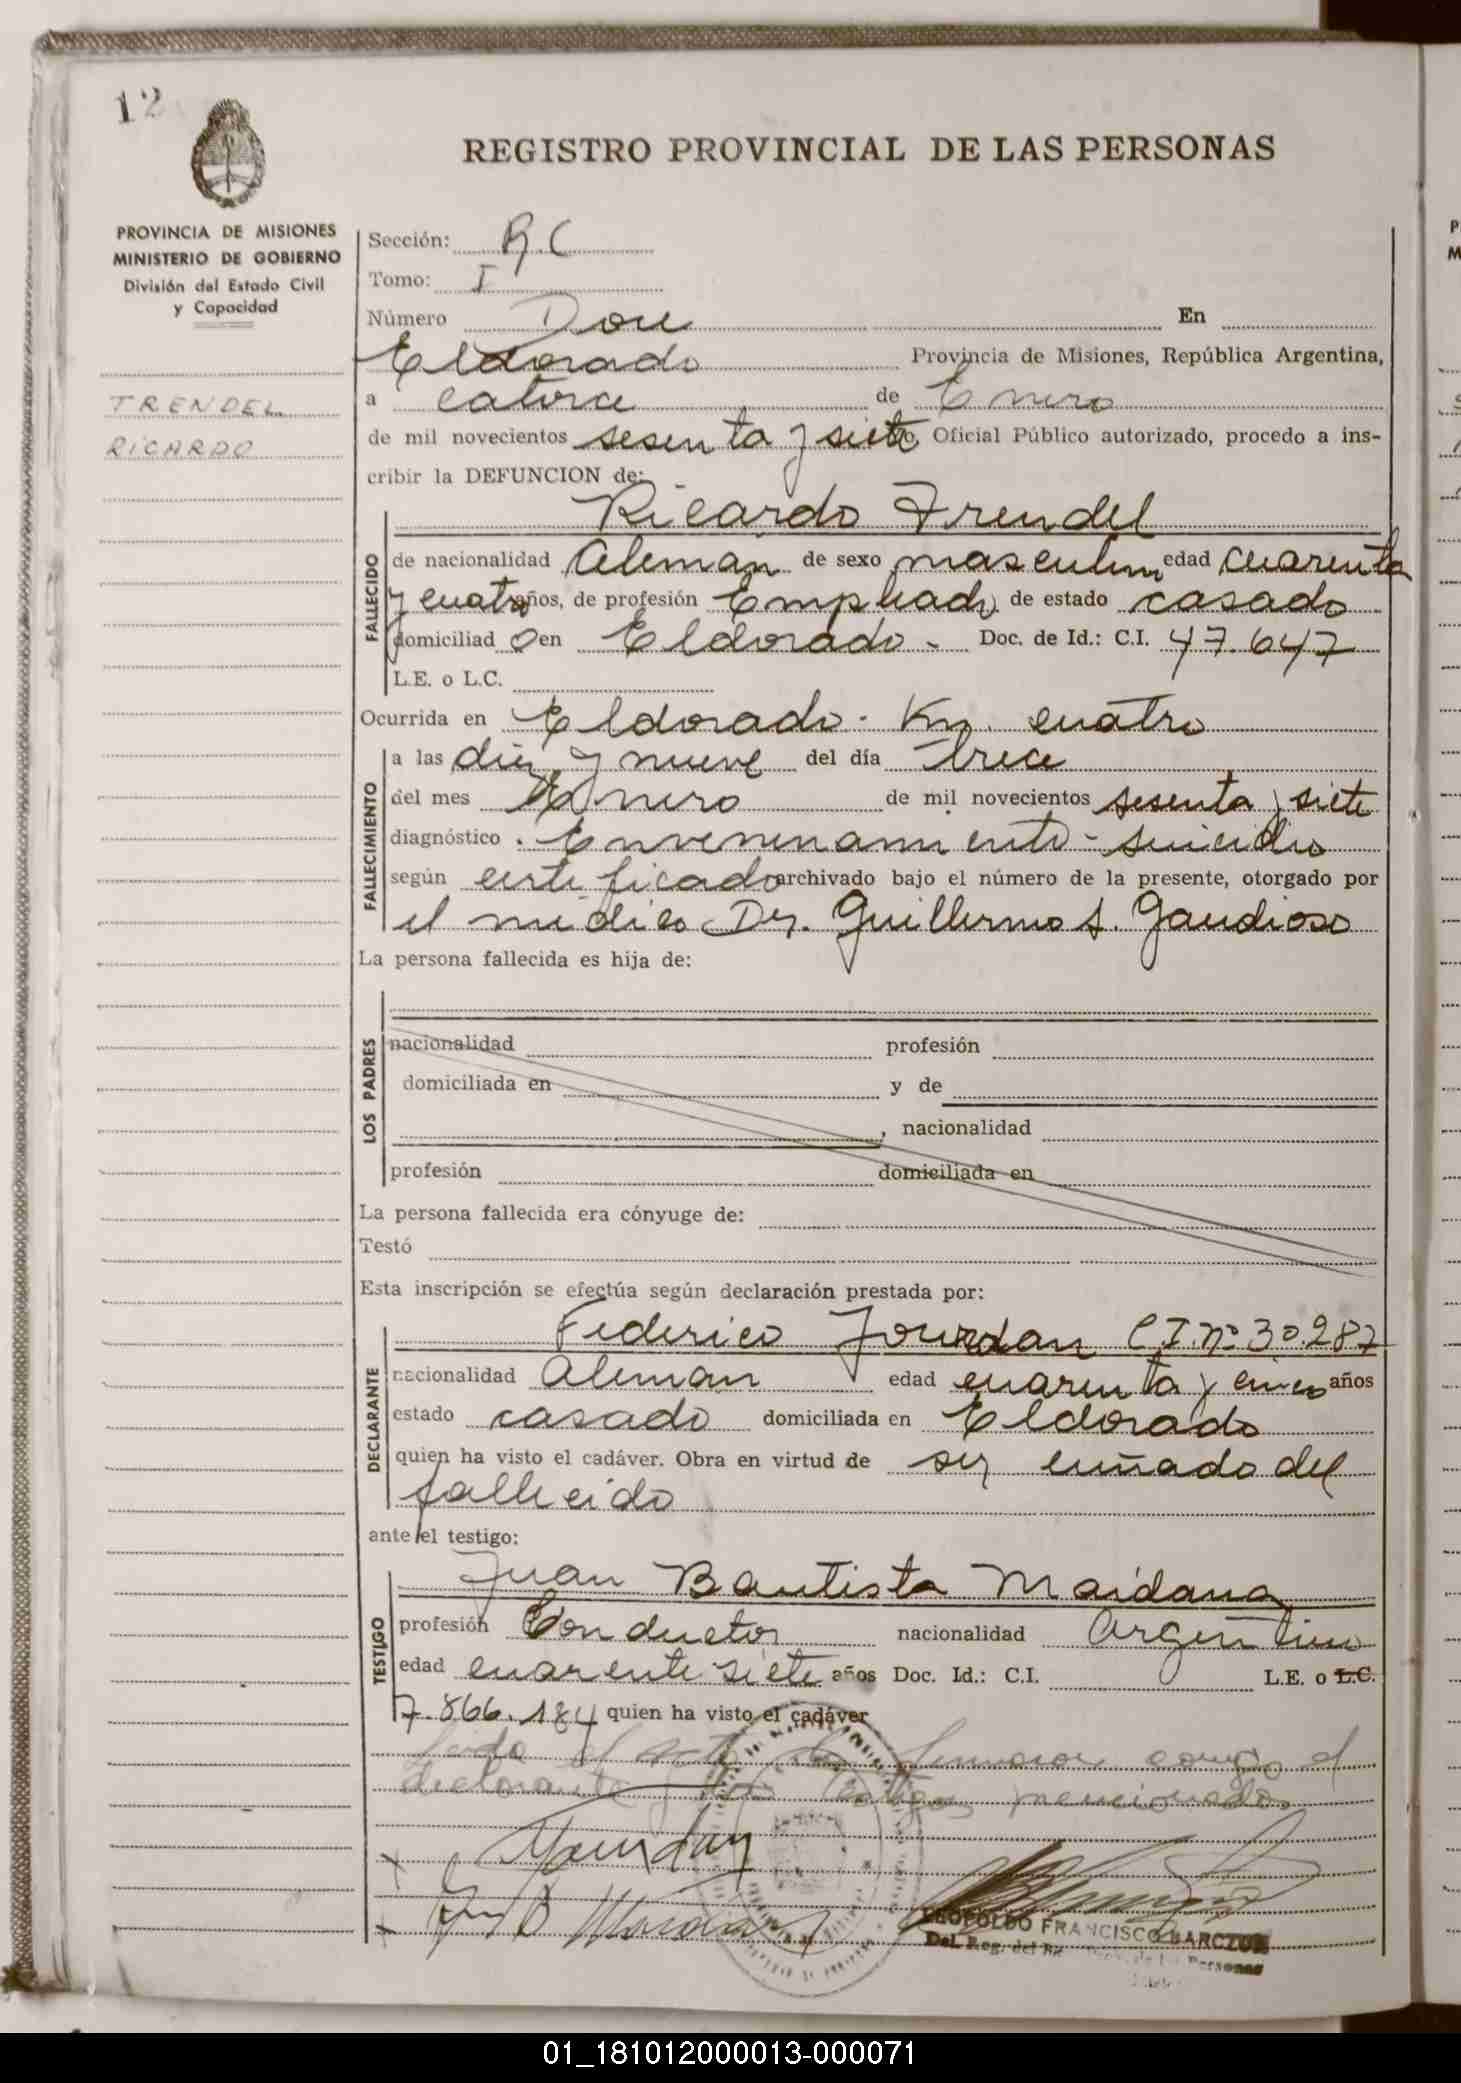 12
REGISTRO PROVINCIAL DE LAS PERSONAS
PROVINCIA DE MISIONES
MINISTERIO DE GOBIERNO
División del Estado Civil
y Capacidad
TRENDEL
RICARDO
Sección: R.C
Tomo: I
Número Doce En
Eldorado Provincia de Misiones, República Argentina,
a catorce de Enero
de mil novecientos sesenta y siete Oficial Público autorizado, procedo a ins-
cribir la DEFUNCION de:
FALLECIDO
Ricardo Trendel
de nacionalidad Alemán de sexo masculino edad cuarenta
y cuatro años, de profesión Empleado de estado casado
domiciliad o en Eldorado - Doc. de Id.: C.I. 47.647
L.E. o L.C.
Ocurrida en Eldorado - Km. cuatro
FALLECIMIENTO
a las diez y nueve del día trece
del mes Enero de mil novecientos sesenta y siete
diagnóstico . Envenenamiento - suicidio
según certificado archivado bajo el número de la presente, otorgado por
el médico Dr. Guillermo A. Gaudioso
La persona fallecida es hija de:
LOS PADRES
nacionalidad profesión
domiciliada en y de
, nacionalidad
profesión domiciliada en
La persona fallecida era cónyuge de:
Testó
Esta inscripción se efectúa según declaración prestada por:
DECLARANTE
Federico Jourdan C.I. nº 30.287
nacionalidad Alemán edad cuarenta y cinco años
estado casado domiciliada en Eldorado
quien ha visto el cadáver. Obra en virtud de ser cuñado del
fallecido
ante el testigo:
TESTIGO
Juan Bautista Maidana
profesión Conductor nacionalidad Argentino
edad cuarente siete años Doc. Id.: C.I. L.E. o L.C.
7.866.184 quien ha visto el cadáver
el acta la firmaron conmigo el
declarante y los testigos mencionados
Jourdan
Juan B Maidana
LEOPOLDO FRANCISCO BARCZUK
Del. Reg. del de las Personas
01_181012000013-000071